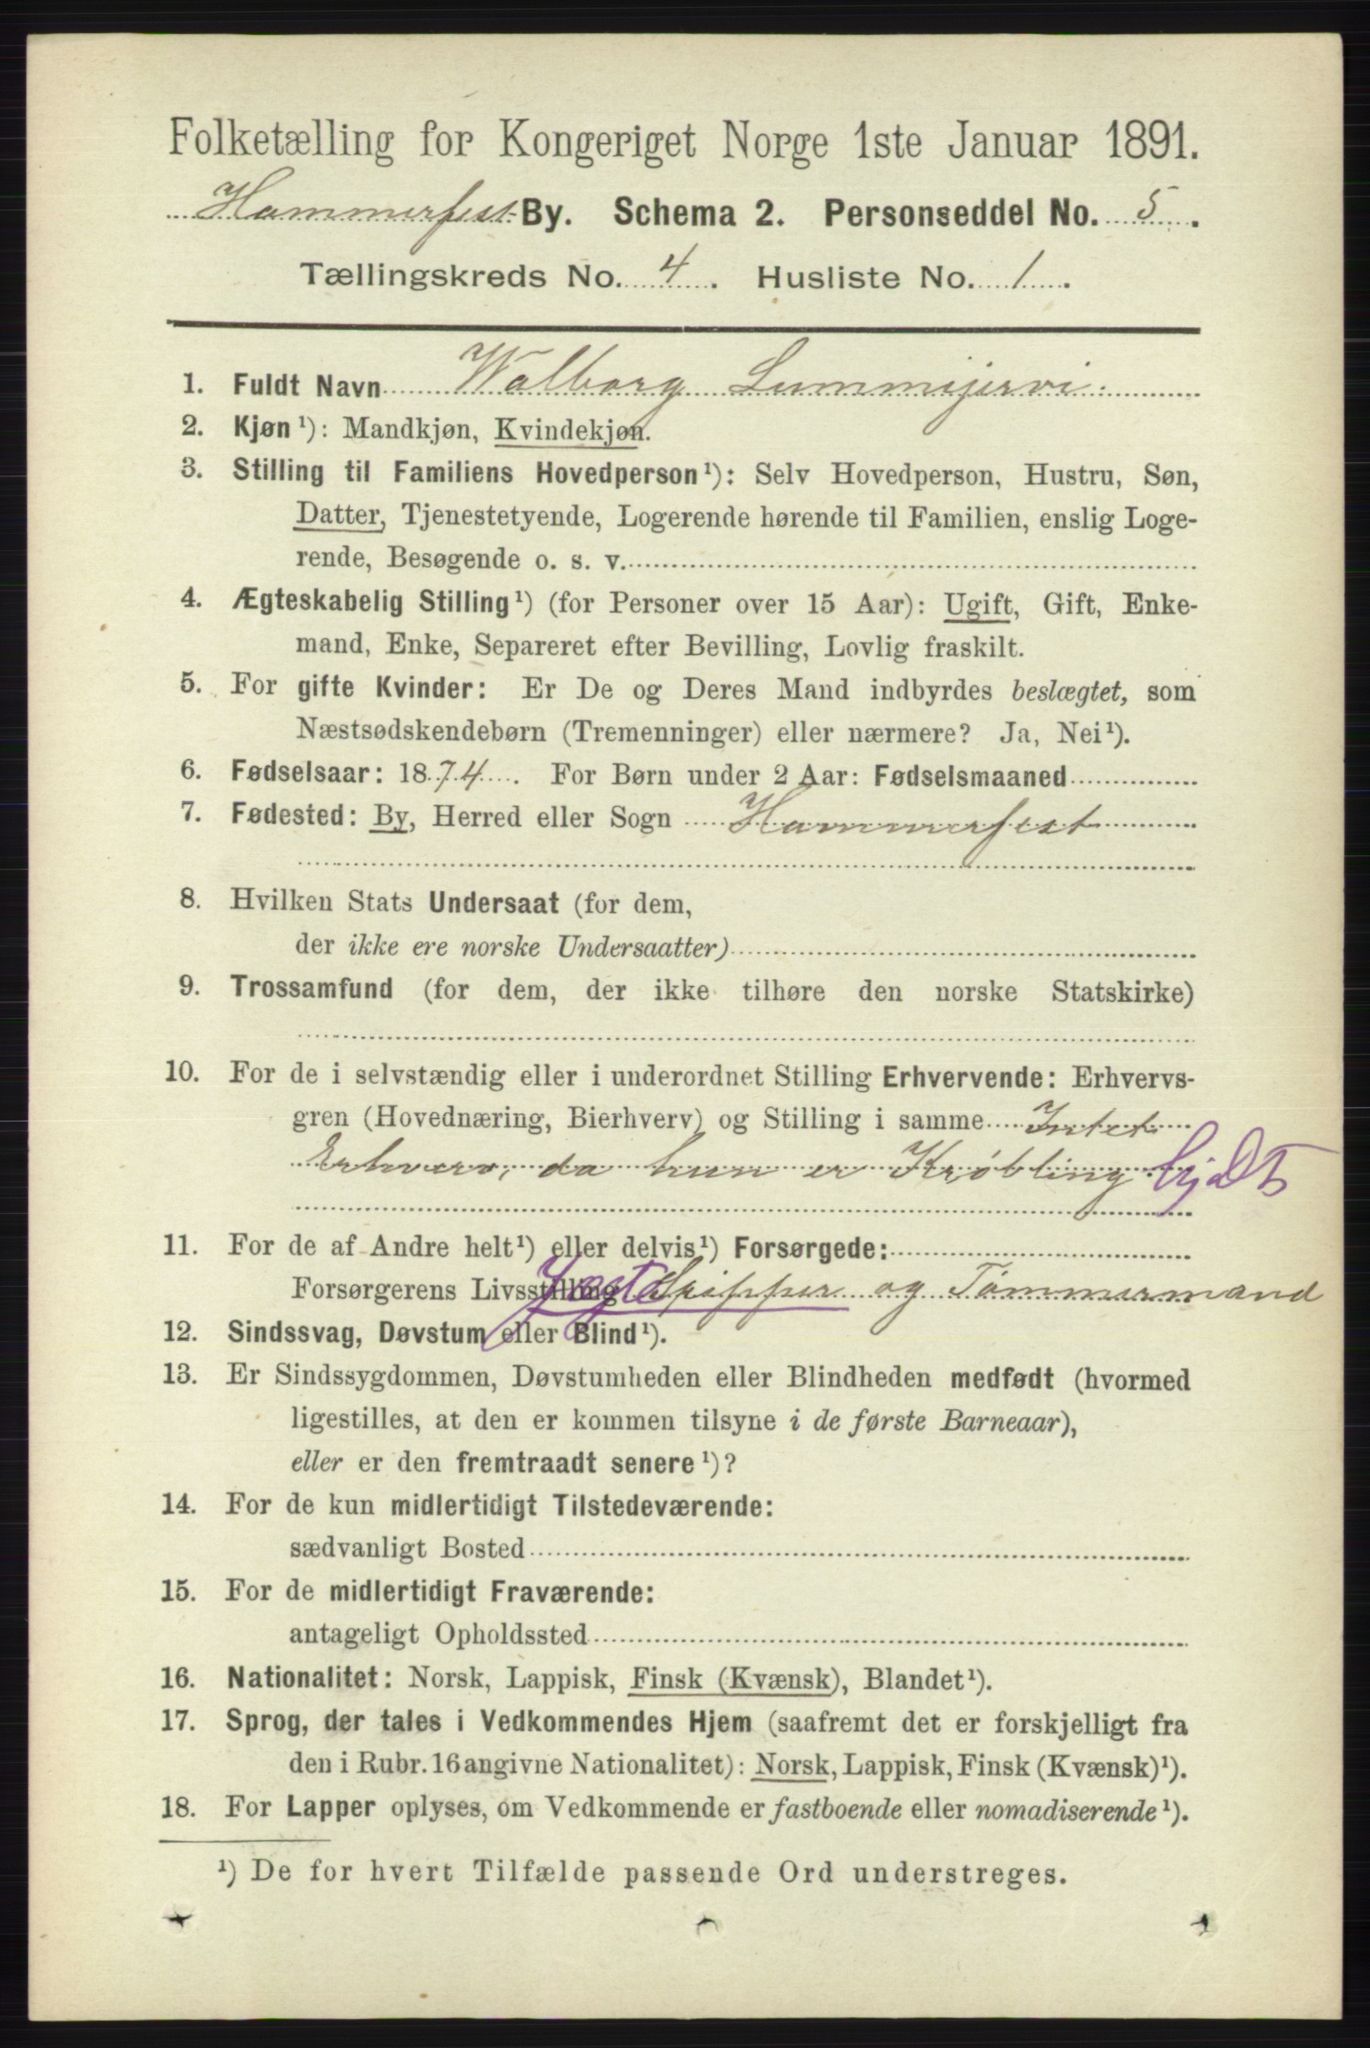 Folketælling for Kongeriget Norge 1ste Januar 1891.
Hammerfest By. Schema 2. Personseddel No. 5.
Tællingskreds No. 4. Husliste No. 1.
1. Fuldt Navn Walborg Lummijervi.
2. Kjøn¹): Mandkjøn, Kvindekjøn.
3. Stilling til Familiens Hovedperson¹): Selv Hovedperson, Hustru, Søn,
Datter, Tjenestetyende, Logerende hørende til Familien, enslig Loge-
rende, Besøgende o. s. v.
4. Ægteskabelig Stilling¹) (for Personer over 15 Aar): Ugift, Gift, Enke-
mand, Enke, Separeret efter Bevilling, Lovlig fraskilt.
5. For gifte Kvinder: Er De og Deres Mand indbyrdes beslægtet, som
Næstsødskendebørn (Tremenninger) eller nærmere? Ja, Nei¹).
6. Fødselsaar: 1874. For Børn under 2 Aar: Fødselsmaaned
7. Fødested: By, Herred eller Sogn Hammerfest
8. Hvilken Stats Undersaat (for dem,
der ikke ere norske Undersaatter)
9. Trossamfund (for dem, der ikke tilhøre den norske Statskirke)
10. For de i selvstændig eller i underordnet Stilling Erhvervende: Erhvervs-
gren (Hovednæring, Bierhverv) og Stilling i samme Intet
Erhverv, da hun er Krøbling
11. For de af Andre helt¹) eller delvis¹) Forsørgede:
Forsørgerens Livsstilling Jagt Skipper og Tømmermand
12. Sindssvag, Døvstum eller Blind¹).
13. Er Sindssygdommen, Døvstumheden eller Blindheden medfødt (hvormed
ligestilles, at den er kommen tilsyne i de første Barneaar),
eller er den fremtraadt senere¹)?
14. For de kun midlertidigt Tilstedeværende:
sædvanligt Bosted
15. For de midlertidigt Fraværende:
antageligt Opholdssted
16. Nationalitet: Norsk, Lappisk, Finsk (Kvænsk), Blandet¹).
17. Sprog, der tales i Vedkommendes Hjem (saafremt det er forskjelligt fra
den i Rubr. 16 angivne Nationalitet): Norsk, Lappisk, Finsk (Kvænsk)¹).
18. For Lapper oplyses, om Vedkommende er fastboende eller nomadiserende¹).
¹) De for hvert Tilfælde passende Ord understreges.